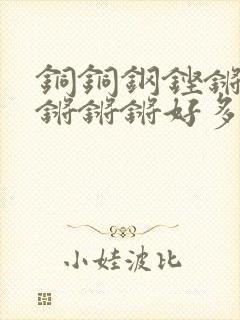 銅銅鋼鏗鏘
鏘鏘鏘好多
小娃波比